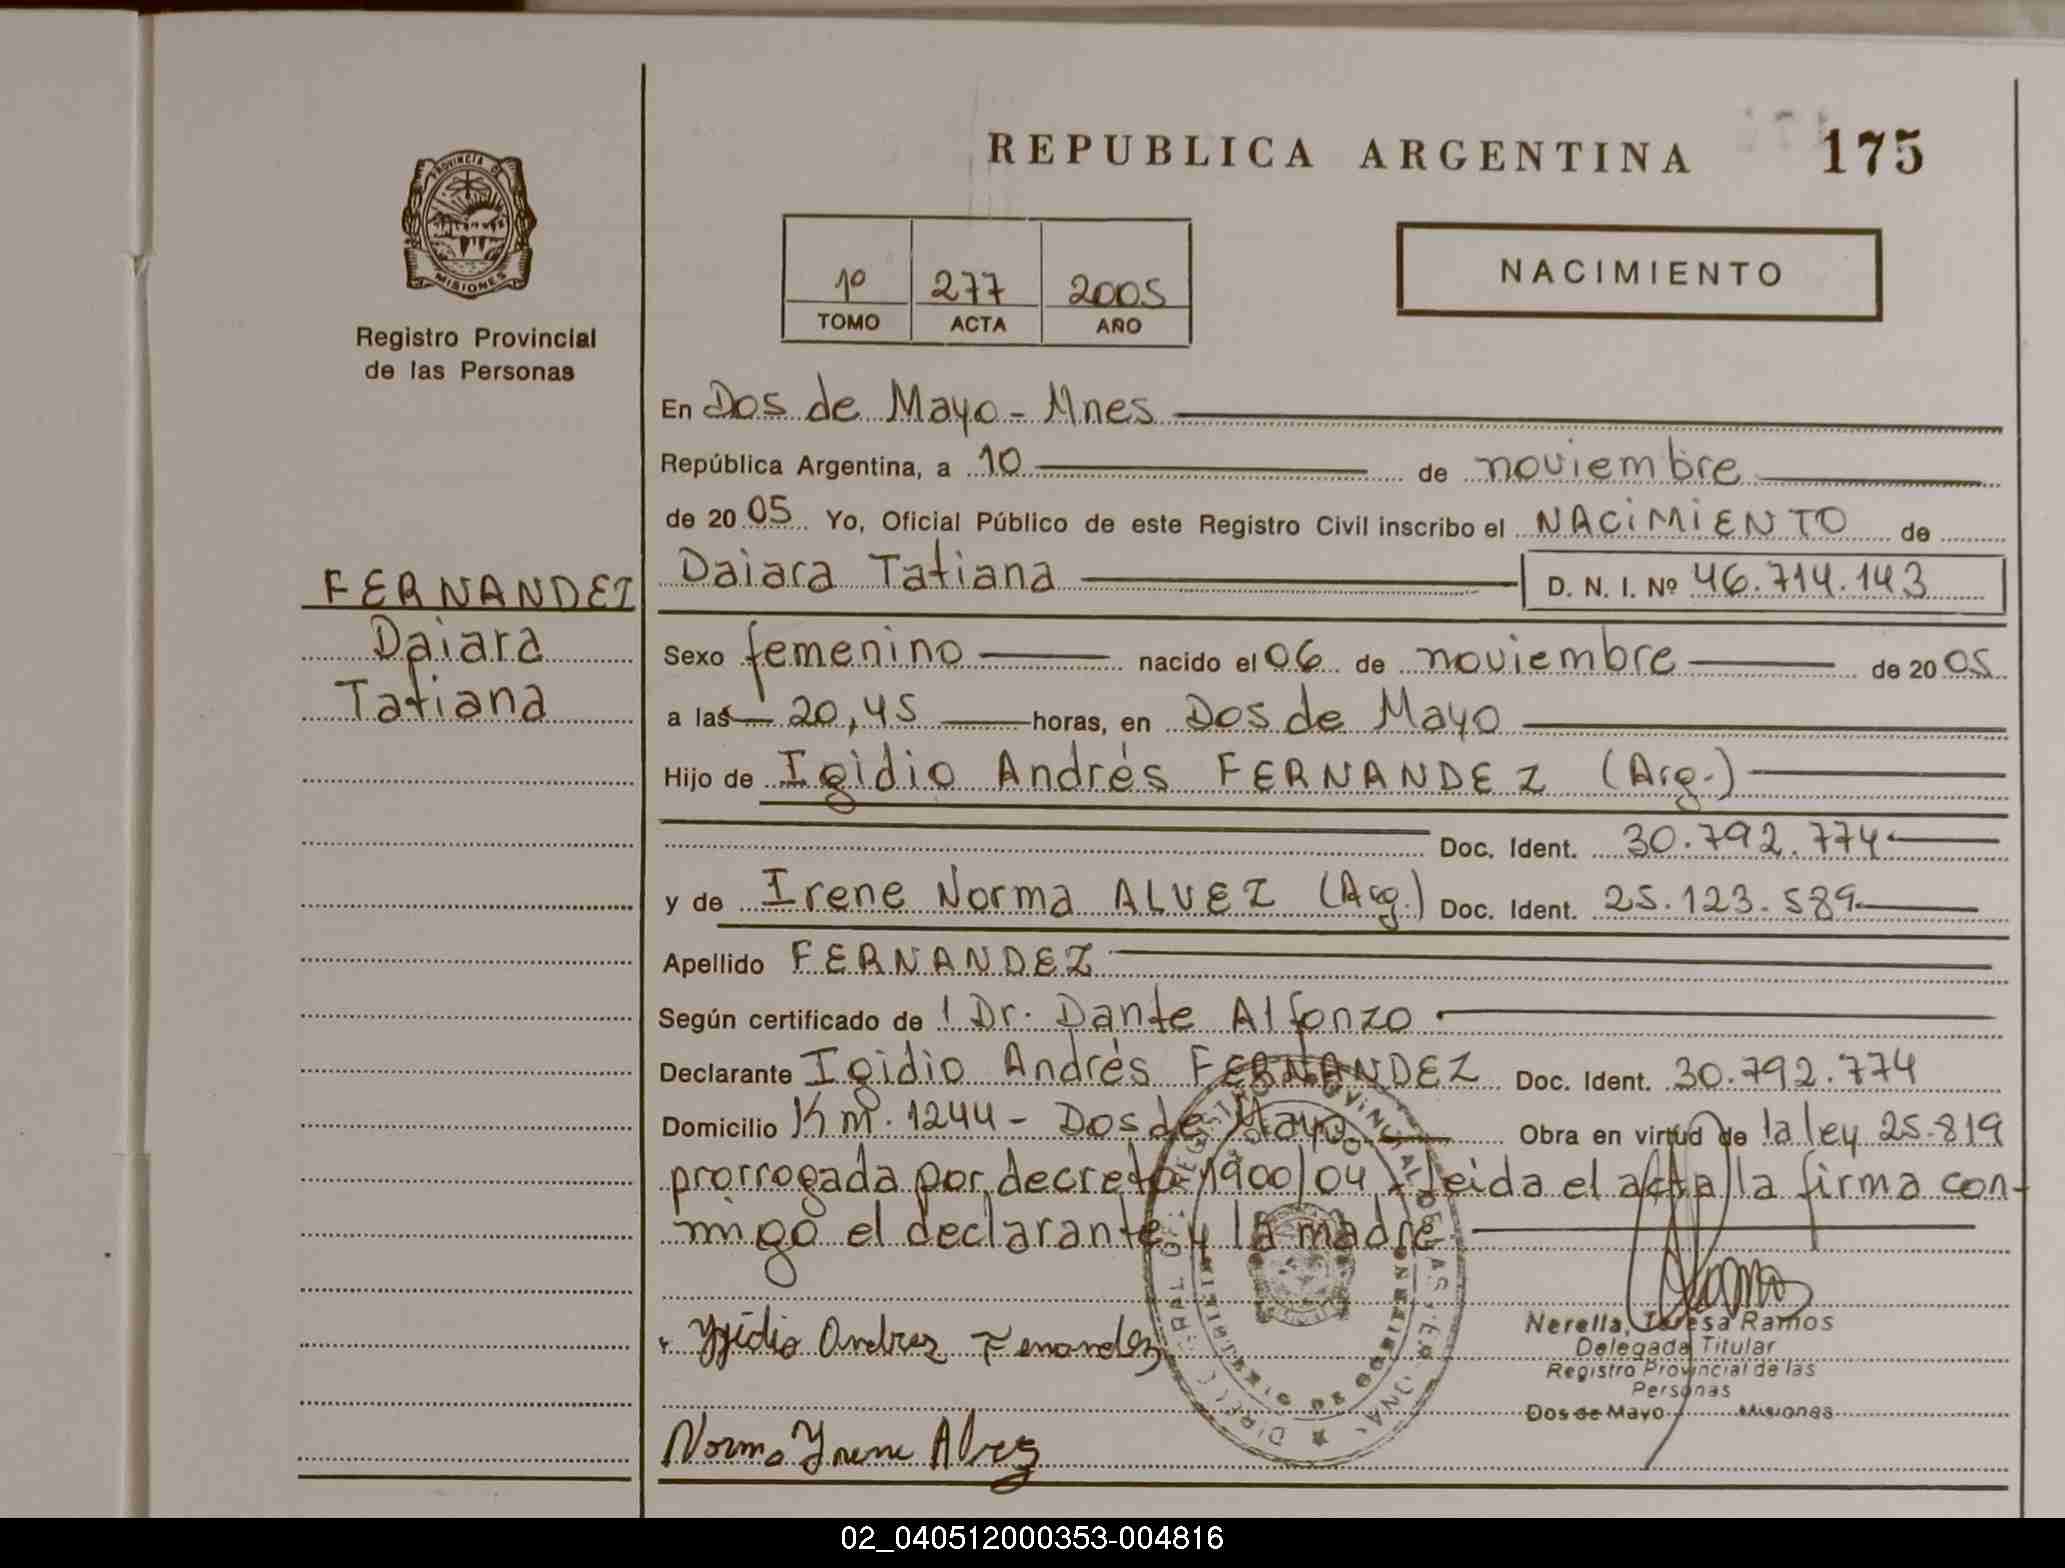 REPUBLICA ARGENTINA 175
PROVINCIA DE
MISIONES
Registro Provincial
de las Personas
1º 277 2005
TOMO ACTA AÑO
NACIMIENTO
En Dos de Mayo - Mnes
República Argentina, a 10 de noviembre
de 2005 Yo, Oficial Público de este Registro Civil inscribo el NACIMIENTO de
FERNANDEZ
Daiara
Tatiana
Daiara Tatiana D. N. I. Nº 46.714.143
Sexo femenino nacido el 06 de noviembre de 2005
a las 20,45 horas, en Dos de Mayo
Hijo de Igidio Andrés FERNANDEZ (Arg.)
Doc. Ident. 30.792.774
y de Irene Norma ALVEZ (Arg.) Doc. Ident. 25.123.589
Apellido FERNANDEZ
Según certificado de l Dr. Dante Alfonzo
Declarante Igidio Andrés FERNANDEZ Doc. Ident. 30.792.774
Domicilio Km. 1244 - Dos de Mayo Obra en virtud de la ley 25.819
prorrogada por decreto 1900/04, leida el acta la firma con-
migo el declarante y la madre
Ygidio Andres Fernandez
Norma Yrene Alvez
Nerella, Teresa Ramos
Delegada Titular
Registro Provincial de las
Personas
Dos de Mayo Misiones
02_040512000353-004816